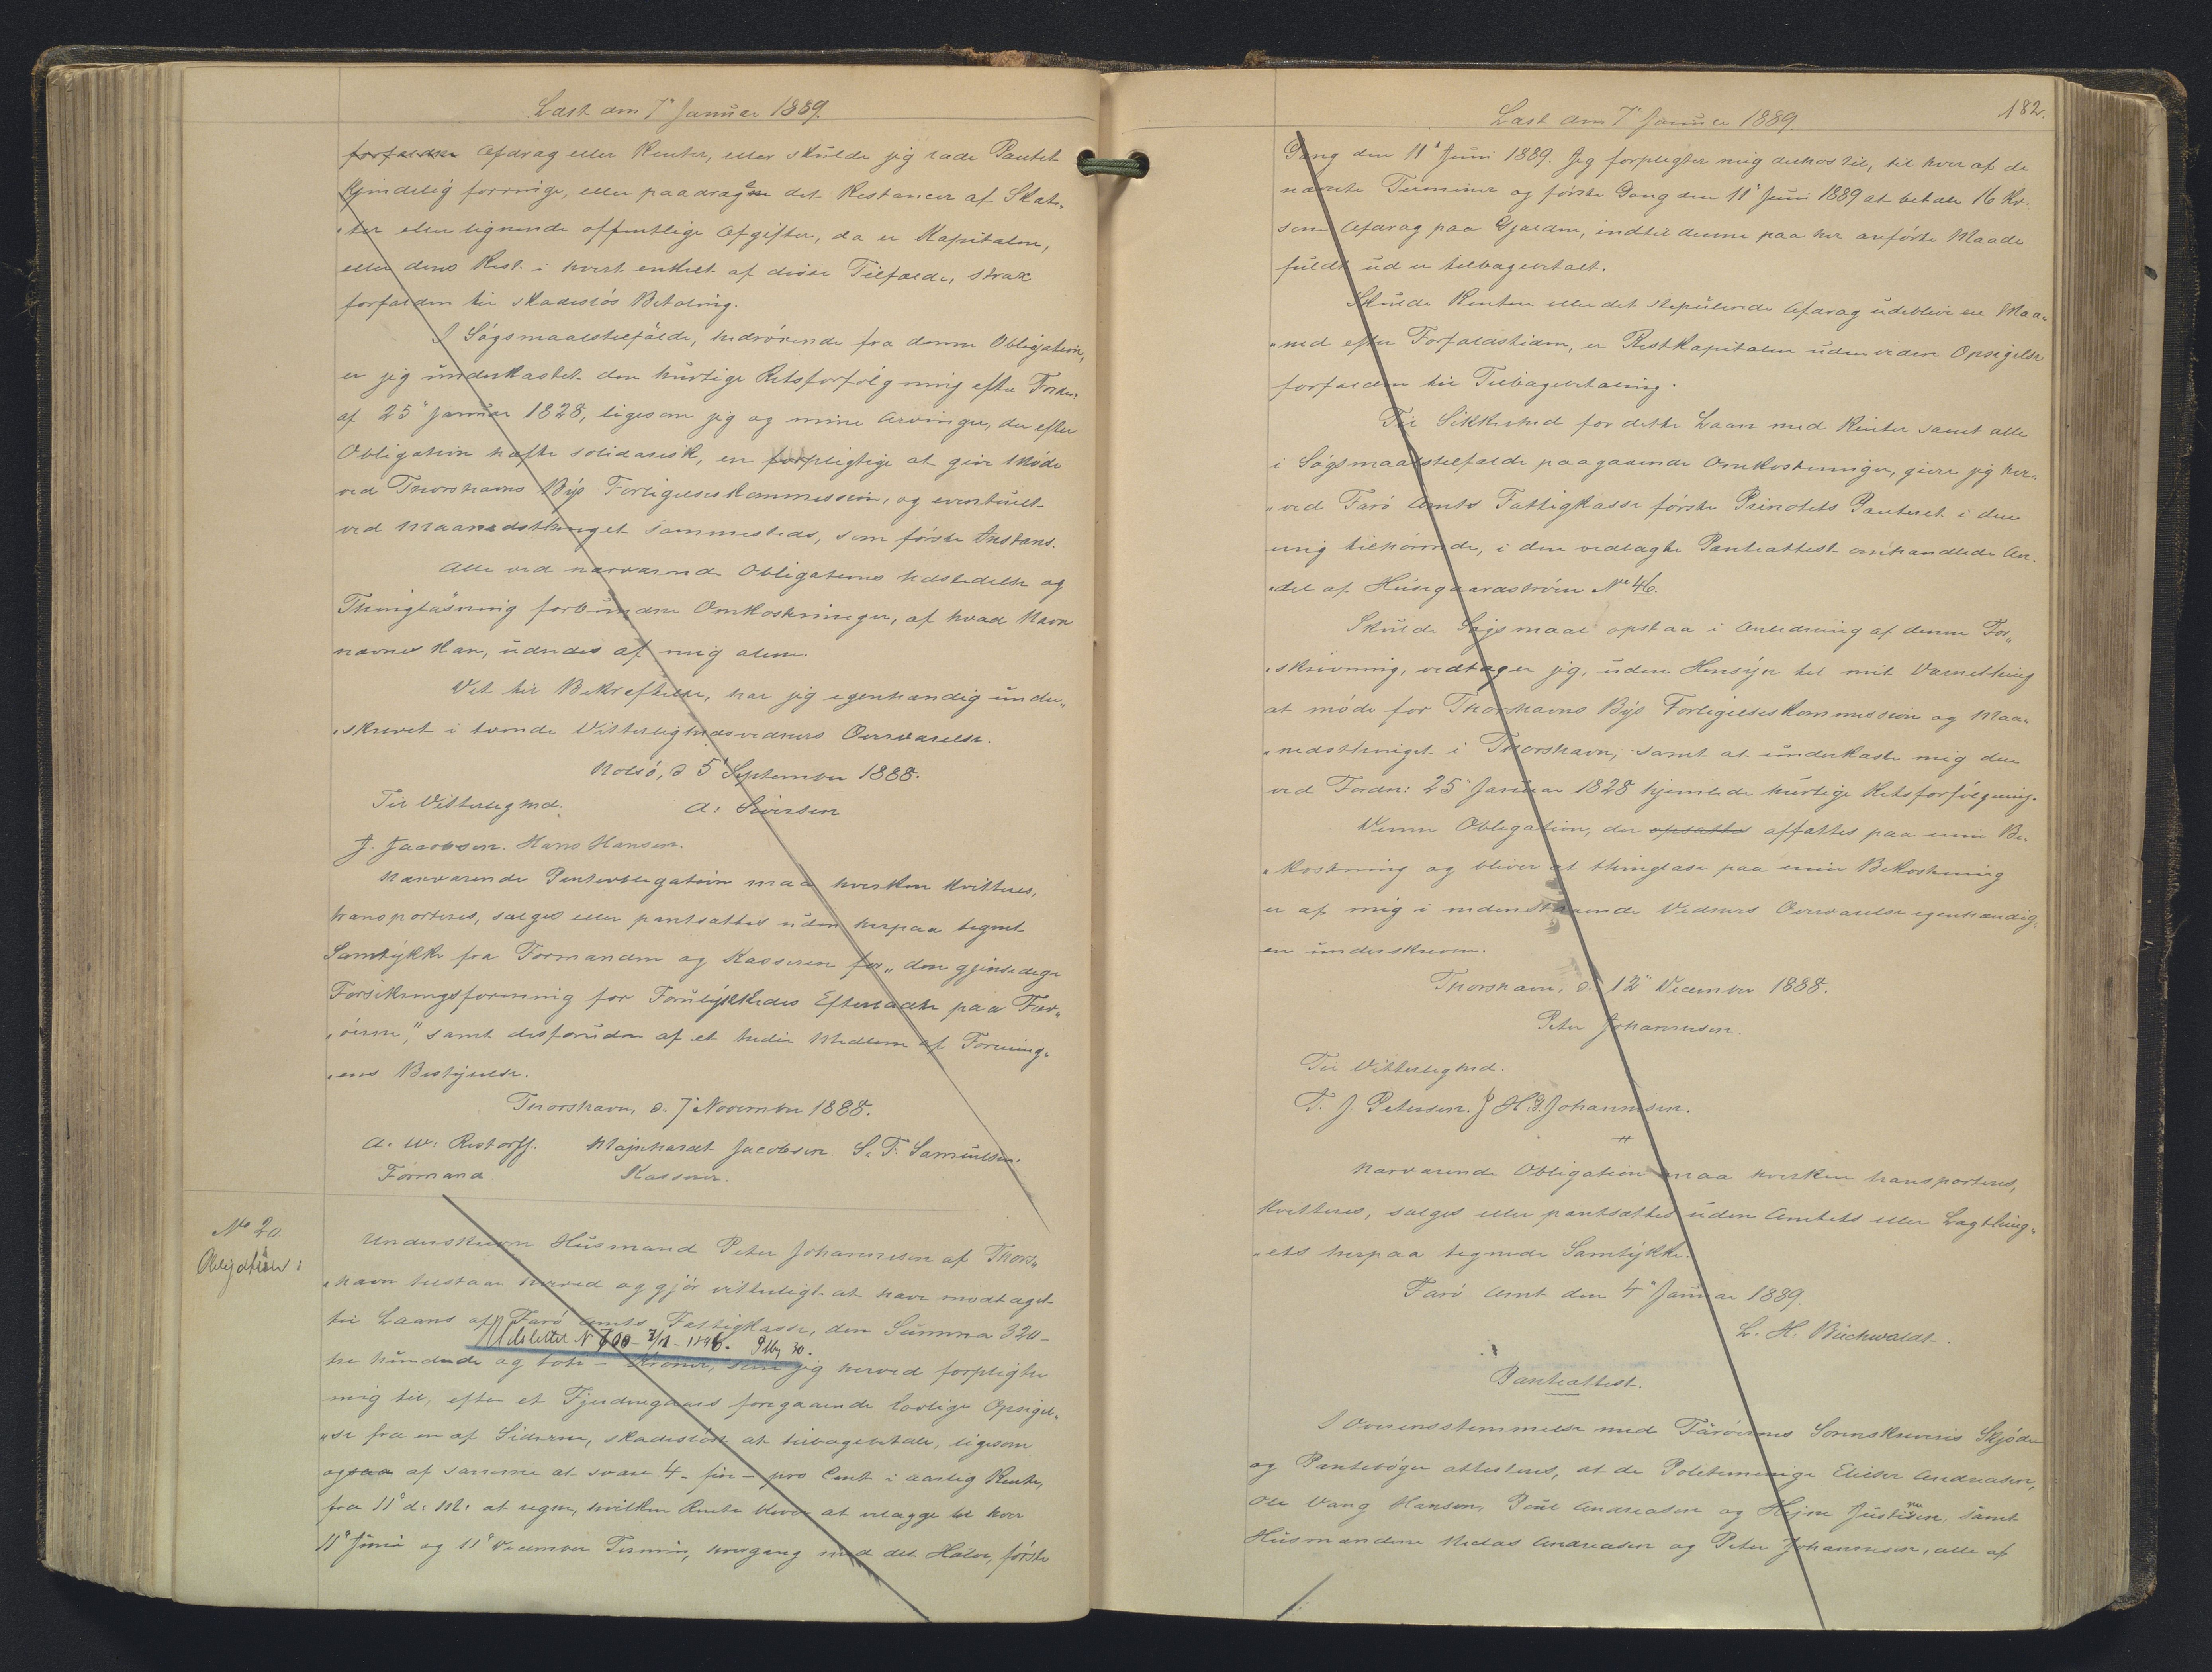 Læst den 7' Januar 1889.
forfaldne Afdrag eller Renter, eller skulde jeg lade Pantet
kjendelig forringe, eller paadrage det Restancer af Skat„
„ter eller lignende offentlige Afgifter, da er Kapitalen,
eller dens Rest i hvert enkelt af disse Tilfælde, strax
forfalden til skadesløs Betaling.
I Søgsmaalstilfælde, hidrörende fra denne Obligation,
er jeg underkastet den hurtige Retsforfölgning efter Fordn:
af 25' Januar 1828, ligesom jeg og mine Arvinger, der efter
Obligation hæfte solidarisk, ere forpligtige at give Möde
ved Thorshavns Bÿs Forligelseskommission, og eventuelt
ved Maanedsthinget sammesteds, som förste Instans.
Alle ved nærværende Obligations Udstedelse og
Thinglæsning forbundne Omkostninger, af hvad Navn
nævnes kan, udredes af mig alene.
Det til Bekræftelse, har jeg egenhændig under„
„skrevet i tvende Vitterlighedsvidners Overværelse.
Nolsö, d 5' September 1888.
Til Vitterlighed. A: Sivertsen
J. Jacobsen. Hans Hansen.
Nærværende Panteobligation maa hverken kvitteres,
transporteres, sælges eller pantsættes uden herpaa tegnet
Samtÿkke fra Formanden og Kasseren for „den gjensidige
Forsikringsforening for Forulÿkkedes Efterladte paa Fær„
„öerne", samt desforuden af et tredie Medlem af Forening„
„ens Bestÿrelse.
Thorshavn, d. 7' November 1888.
A. W: Restorff. Majnhardt Jacobsen. S. F. Samuelsen.
Formand. Kasserer.
No 20.
Obligation:
Underskrevne Husmand Peter Johannesen af Thors„
„havn tilstaar herved og gjör vitterligt at have modtaget
til Laans af Farö Amts Fattigkasse, den Summa 320 –
Udslettet N 700 – 1896.
tre hundrede og tote – Kroner, som jeg herved forpligter
mig til, efter et Fjendingaars foregaaende lovlige Opsigel„
„se fra en af Siderne, skadeslöst at tilbagebetale, ligesom
ogsaa af samme at svare 4 – fire – pro Cent i aarlig Rente,
fra 11' d: M: at regne, hvilken Rente bliver at erlægge til hver
11' Juni og 11' December Termin, hvergang med det Halve, förste
Læst den 7' Januar 1889
182.
Gang den 11' Juni 1889. Jeg forpligter mig derhos til, til hver af de
nævnte Terminer og förste Gang den 11' Juni 1889 at betale 16 Kr.
som Afdrag paa Gjælden, indtil denne paa her anförte Maade
fuldt ud er tilbagebetalt.
Skulde Renten eller det stipulerede Afdrag udeblive en Maa„
„ned efter Forfaldstiden, er Restkapitalen uden videre Opsigelse
forfalden til Tilbagebetaling.
Til Sikkerhed for dette Laan med Renter samt alle
i Søgsmaalstilfælde paagaaende Omkostninger, giver jeg her„
„ved Farö Amts Fattigkasse förste Prioritets Panteret i den
mig tilhörende, i den vedlagte Panteattest omhandlede An„
„del af Husegaardströen No 46.
Skulde Søgsmaal opstaa i Anledning af denne For„
„skrivning, vedtager jeg, uden Hensÿn til mit Værnething
at möde for Thorshavns Bÿs Forligelseskommission og Maa„
„nedsthinget i Thorshavn, samt at underkaste mig den
ved Fordn: 25' Januar 1828 hjemlede hurtige Retsforfölgning.
Denne Obligation, der opsættes affattes paa min Be„
„kostning og bliver at thinglæse paa min Bekostning
er af mig i nedenstaaende Vidners Overværelse egenhændig„
en underskreven.
Thorshavn, d. 12' December 1888.
Peter Johannesen.
Til Vitterlighed.
T. J Petersen. J. H. J. Johannesen.
Nærværende Obligation maa hverken transporteres,
kvitteres, sælges eller pantsættes uden Amtets eller Lagthing„
„ets herpaa tegnede Samtÿkke.
Farö Amt den 4' Januar 1889.
L. H. Buchwaldt.
Panteattest.
I Overensstemmelse med Færöernes Sorenskriveris Skjöde
og Pantebøger attesteres, at de Politimenige Elieser Andreasen,
Ole Vang Hansen, Poul Andreasen og Hejne Justinusen, samt
Husmændene Niclas Andreasen og Peter Johannesen, alle af